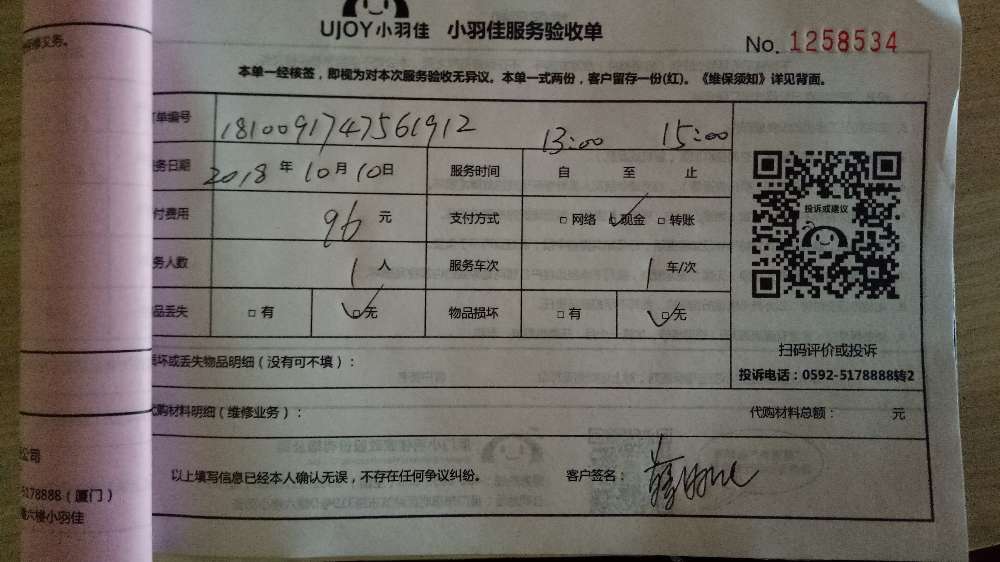 UJOY小羽佳 小羽佳服务验收单
No. 1258534
本单一经核签，即视为对本次服务验收无异议。本单一式两份，客户留存一份(红)。《维保须知》详见背面。
单编号 1810091747561912 13:00 15:00
务日期 2018年10月10日 服务时间 自 至 止
付费用 96元 支付方式 □网络 ☑现金 □转账
投诉或建议
务人数 1人 服务车次 1车/次
品丢失 □有 ☑无 物品损坏 □有 ☑无
扫码评价或投诉
坏或丢失物品明细（没有可不填）：
投诉电话：0592-5178888转2
购材料明细（维修业务）： 代购材料总额： 元
以上填写信息已经本人确认无误，不存在任何争议纠纷。 客户签名：
务。
公司
5178888（厦门）
六楼小羽佳